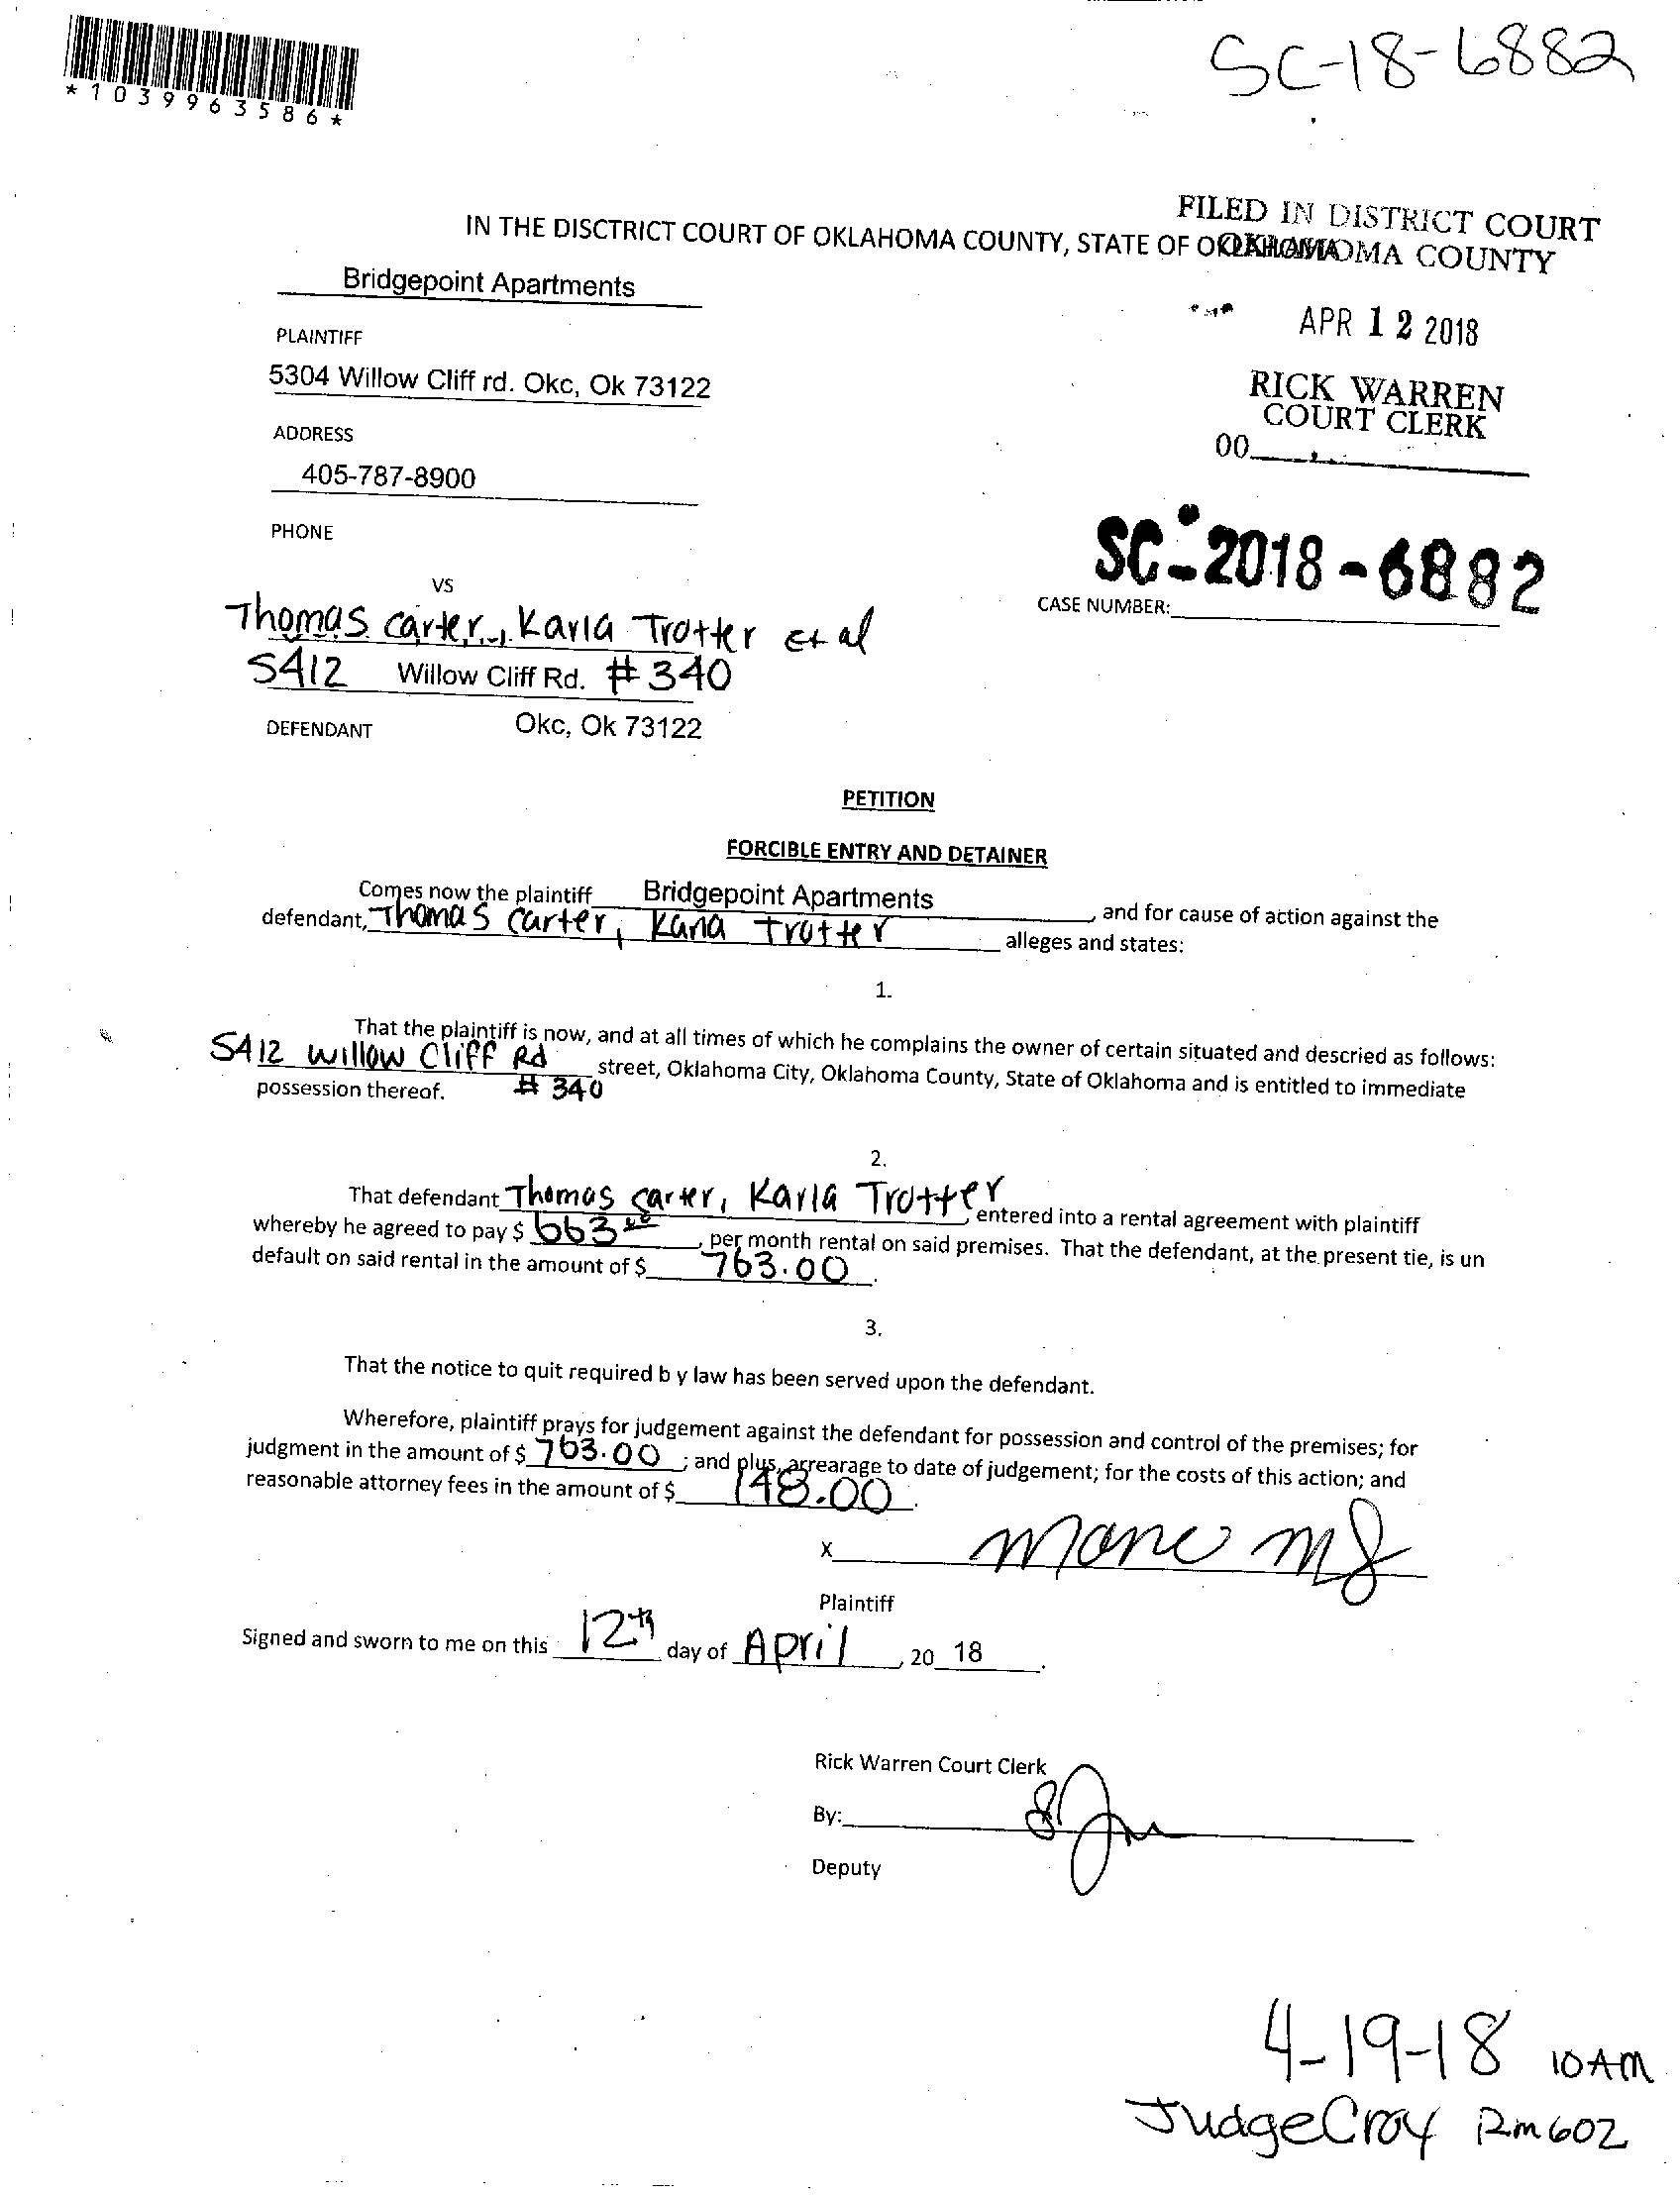 SC-18-6882
*1039963586*
FILED IN DISTRICT COURT
IN THE DISCTRICT COURT OF OKLAHOMA COUNTY, STATE OF OKLAHOMA
OKLAHOMA COUNTY
Bridgepoint Apartments
APR 12 2018
PLAINTIFF
5304 Willow Cliff rd. Okc, Ok 73122
RICK WARREN
COURT CLERK
ADDRESS
00
405-787-8900
PHONE
SC-2018-6882
CASE NUMBER:
VS
Thomas Carter, Karla Trotter et al
5412 Willow Cliff Rd. #340
DEFENDANT Okc, Ok 73122
PETITION
FORCIBLE ENTRY AND DETAINER
Comes now the plaintiff Bridgepoint Apartments, and for cause of action against the
defendant, Thomas Carter, Karla Trotter alleges and states:
1.
That the plaintiff is now, and at all times of which he complains the owner of certain situated and descried as follows:
5412 Willow Cliff Rd street, Oklahoma City, Oklahoma County, State of Oklahoma and is entitled to immediate
possession thereof. # 340
2.
That defendant Thomas Carter, Karla Trotter, entered into a rental agreement with plaintiff
whereby he agreed to pay $ 663.00, per month rental on said premises. That the defendant, at the present tie, is un
default on said rental in the amount of $ 763.00.
3.
That the notice to quit required b y law has been served upon the defendant.
Wherefore, plaintiff prays for judgement against the defendant for possession and control of the premises; for
judgment in the amount of $ 763.00; and plus, arrearage to date of judgement; for the costs of this action; and
reasonable attorney fees in the amount of $ 148.00.
X
Plaintiff
Signed and sworn to me on this 12th day of April, 20 18.
Rick Warren Court Clerk
By:
Deputy
4-19-18 10AM
Judge Croy Rm 602